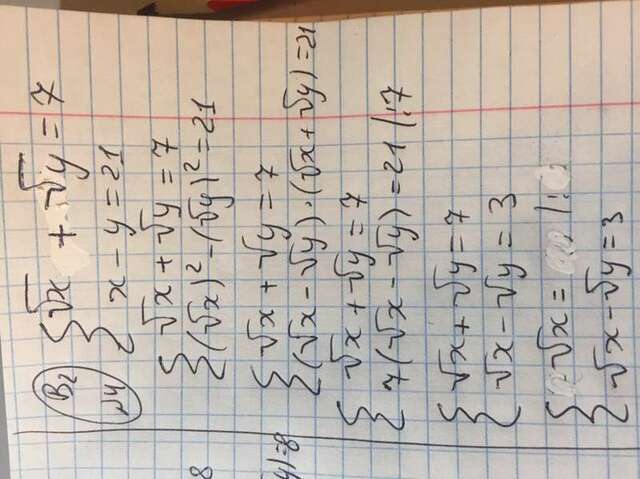 В2 √x + √y = 7
№4 x - y = 21
√x + √y = 7
(√x)² - (√y)² = 21
√x + √y = 7
(√x - √y) · (√x + √y) = 21
√x + √y = 7
7(√x - √y) = 21 |:7
√x + √y = 7
√x - √y = 3
√x = |:
√x - √y = 3
8
y)=8